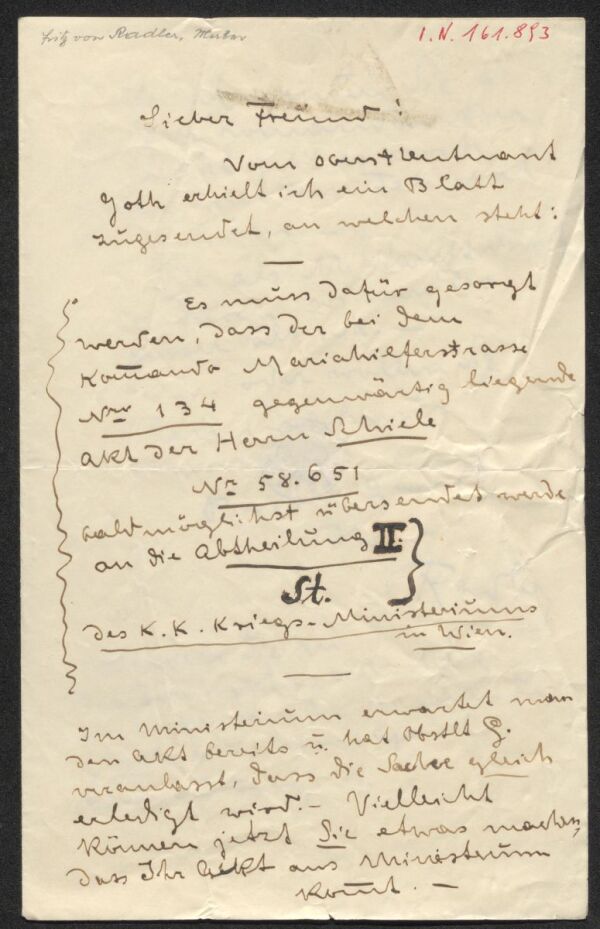 Fritz von Radler, Maler
I.N. 161.893
Lieber Freund!
Vom Oberstleutnant
Goth erhielt ich ein Blatt
zugesendet, an welchen steht:
Es muss dafür gesorgt
werden, dass der bei dem
Kom̄ando Mariahilferstrasse
Nro 134 gegenwärtig liegende
Akt der Herrn Schiele
Nr 58.651
baldmöglichst übersendet werde
an die Abtheilung II.
St.
des K.K. Kriegs-Ministeriums
in Wien.
Im Ministerium erwartet man
den Akt bereits u. hat Obstlt G.
veranlasst, dass die Sache gleich
erledigt wird. – Vielleicht
können jetzt Sie etwas machen,
dass Ihr Akt ans Ministerium
kom̄t. –